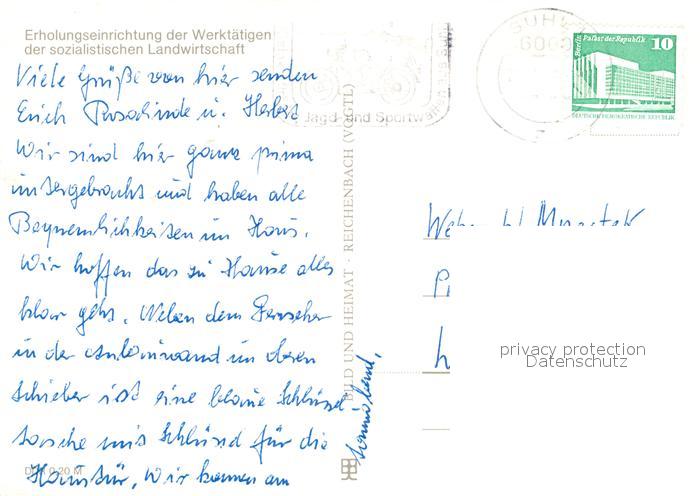 Erholungseinrichtung der Werktätigen
der sozialistischen Landwirtschaft
Viele Grüße von hier senden
Euch Rosalinde u. Herbert
Wir sind hier ganz prima
untergebracht und haben alle
Bequemlichkeiten im Haus.
Wir hoffen das zu Hause alles
klar geht. Neben dem Fernseher
in der Anbauwand im oberen
Schieber ist eine blaue Schlüssel-
tasche mit Schlüssel für die
Haustür, Wir kommen am
Sonnabend.
BILD UND HEIMAT · REICHENBACH (VOGTL)
0,20 M
SUHL
6000
Jagd- und Sportw
Berlin Palast der Republik
10
DEUTSCHE DEMOKRATISCHE REPUBLIK
privacy protection
Datenschutz